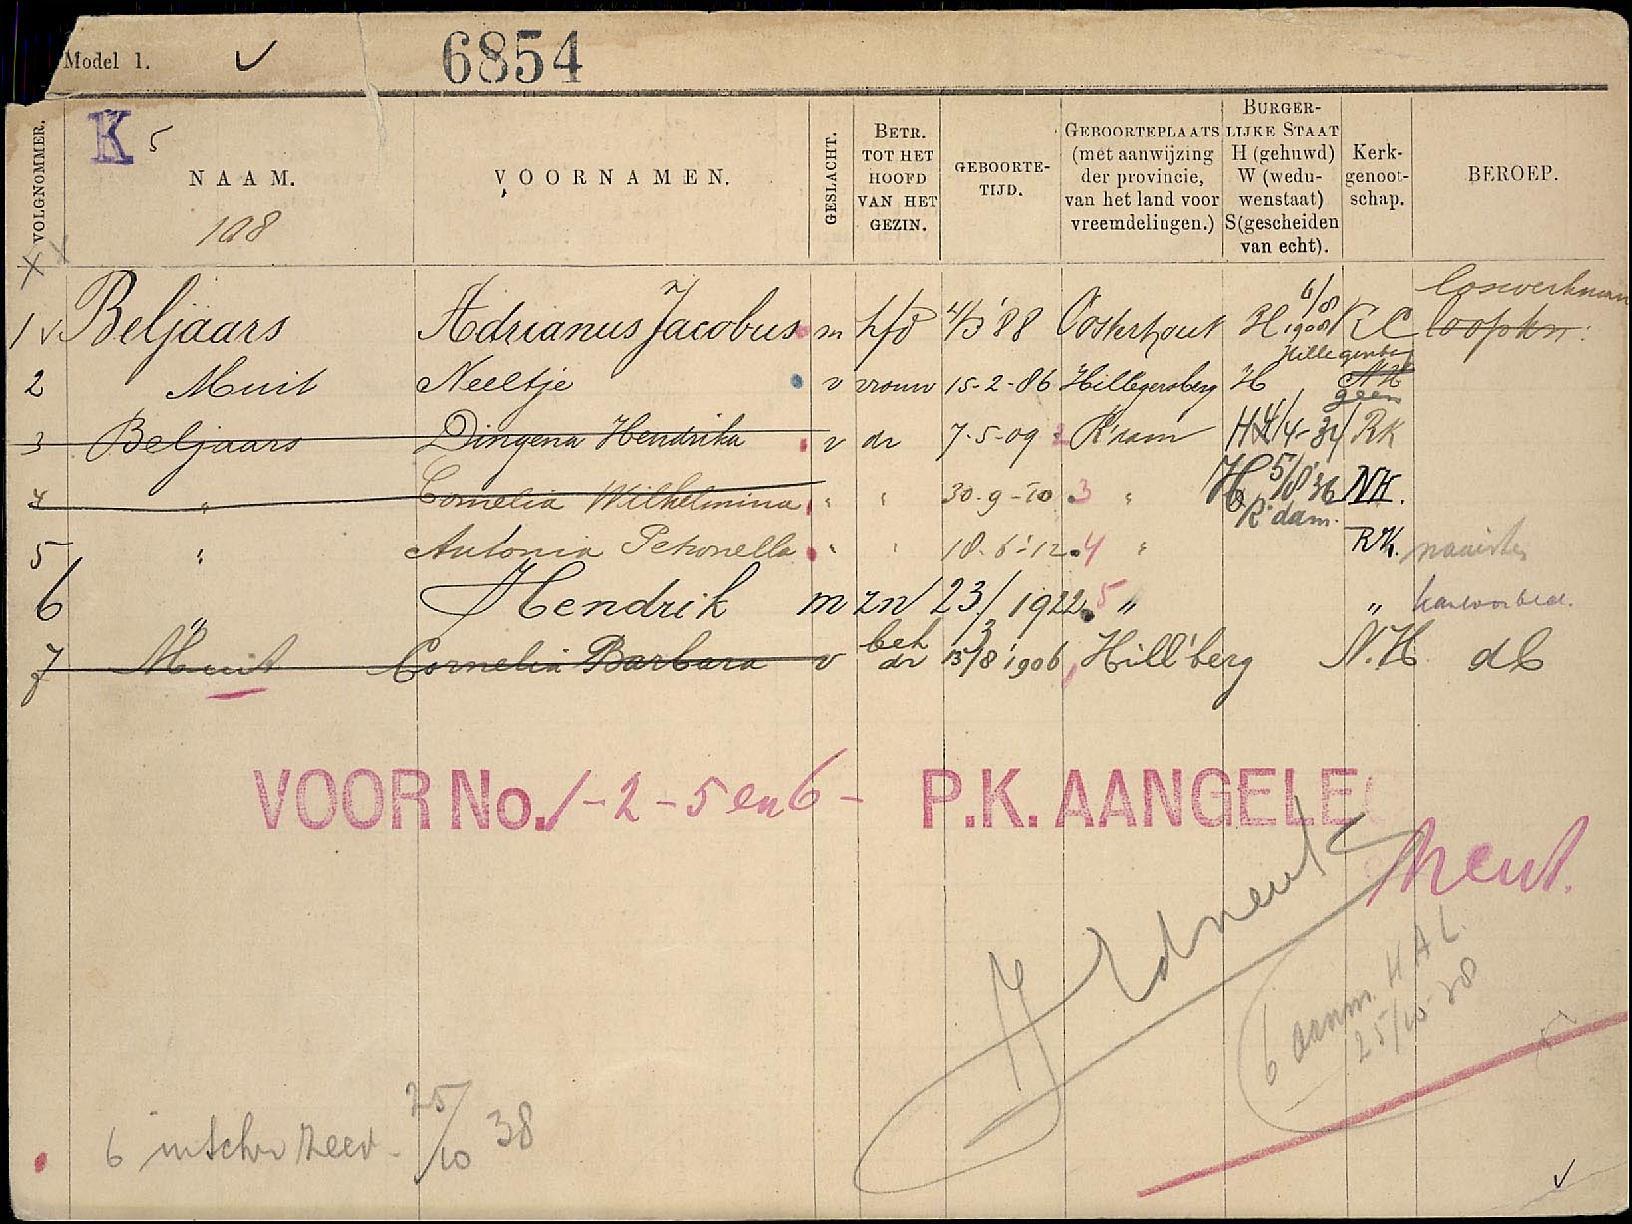 Model 1. 6854
K 5
VOLGNOMMER. NAAM. VOORNAMEN. GESLACHT. BETR. TOT HET HOOFD VAN HET GEZIN. GEBOORTE-TIJD. GEBOORTEPLAATS (met aanwijzing der provincie, van het land voor vreemdelingen.) BURGER-LIJKE STAAT H (gehuwd) W (wedu-wenstaat) S (gescheiden van echt). Kerk-genoot-schap. BEROEP.
108
loswerkman
1 Beljaars Adrianus Jacobus m hfd 4/3 '88 Oosterhout H 6/8 1908 RC loopkn:
Hillegersberg
2 Muit Neeltje v vrouw 15-2-86 Hillegersberg H NH
geen
3 Beljaars Dingena Hendrika v dr 7-5-09 2 R'dam H 4/4-34 RK
4 " Cornelia Wilhelmina " " 30-9-10 3 " H 5/8 '36 NH.
R'dam.
5 " Antonia Petronella " " 18-6-12 4 " RK. naaister
6 " Hendrik m zn 23/3 1922 5 " "
7 Muit Cornelia Barbara v beh dr 15/8 1906 Hill'berg N.H. db
VOOR No. 1-2-5 en 6- P.K. AANGELEG
6 aanm. H A L.
25/10-38
6 inschr Zeev. 25/10 38